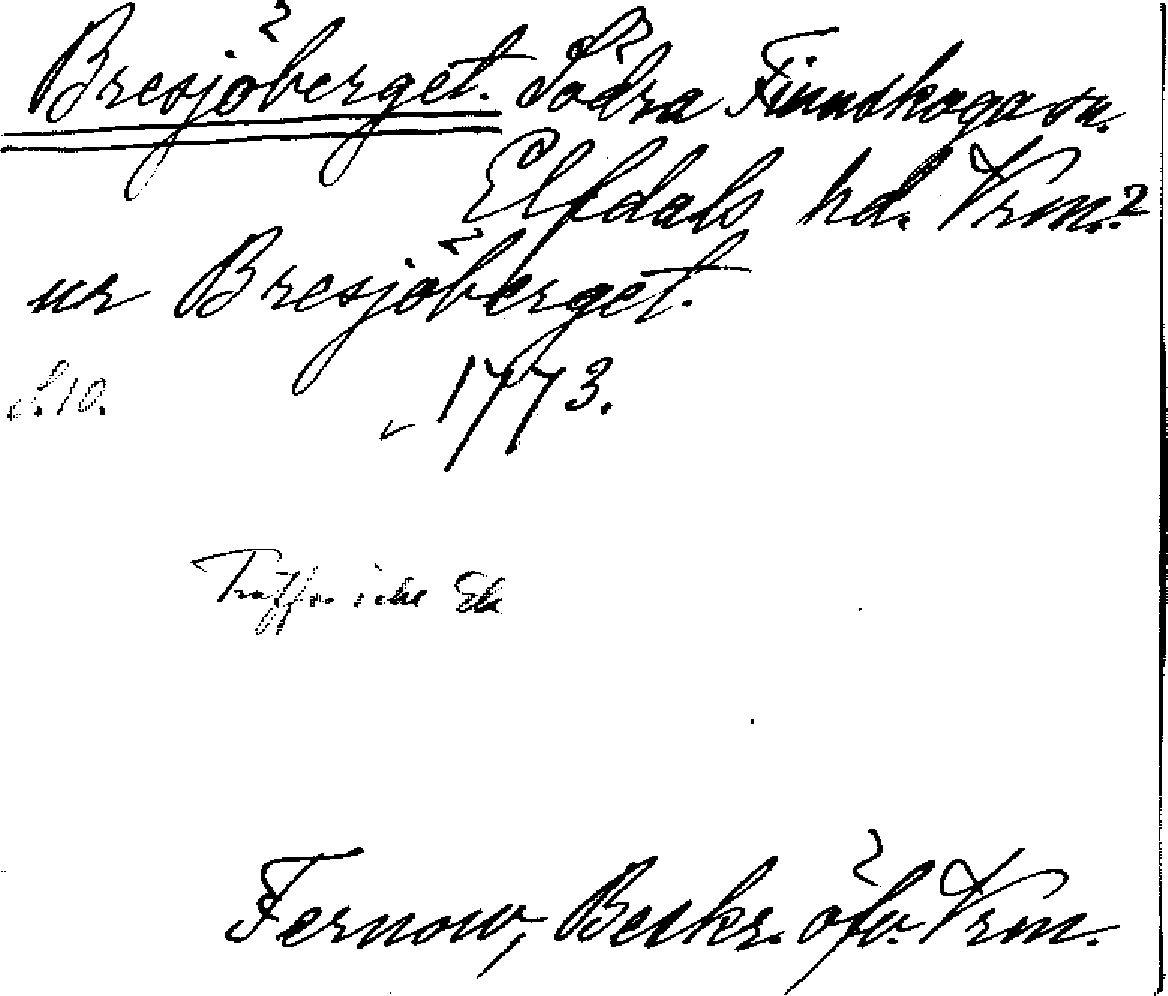 Bresjöberget. Södra Finnskoga sn.
Elfdals hd. Vrm.?
ur Bresjöberget.
S. 10. 1773.
Träffas icke Ek
Fernow, Beskr. öfv. Vrm.